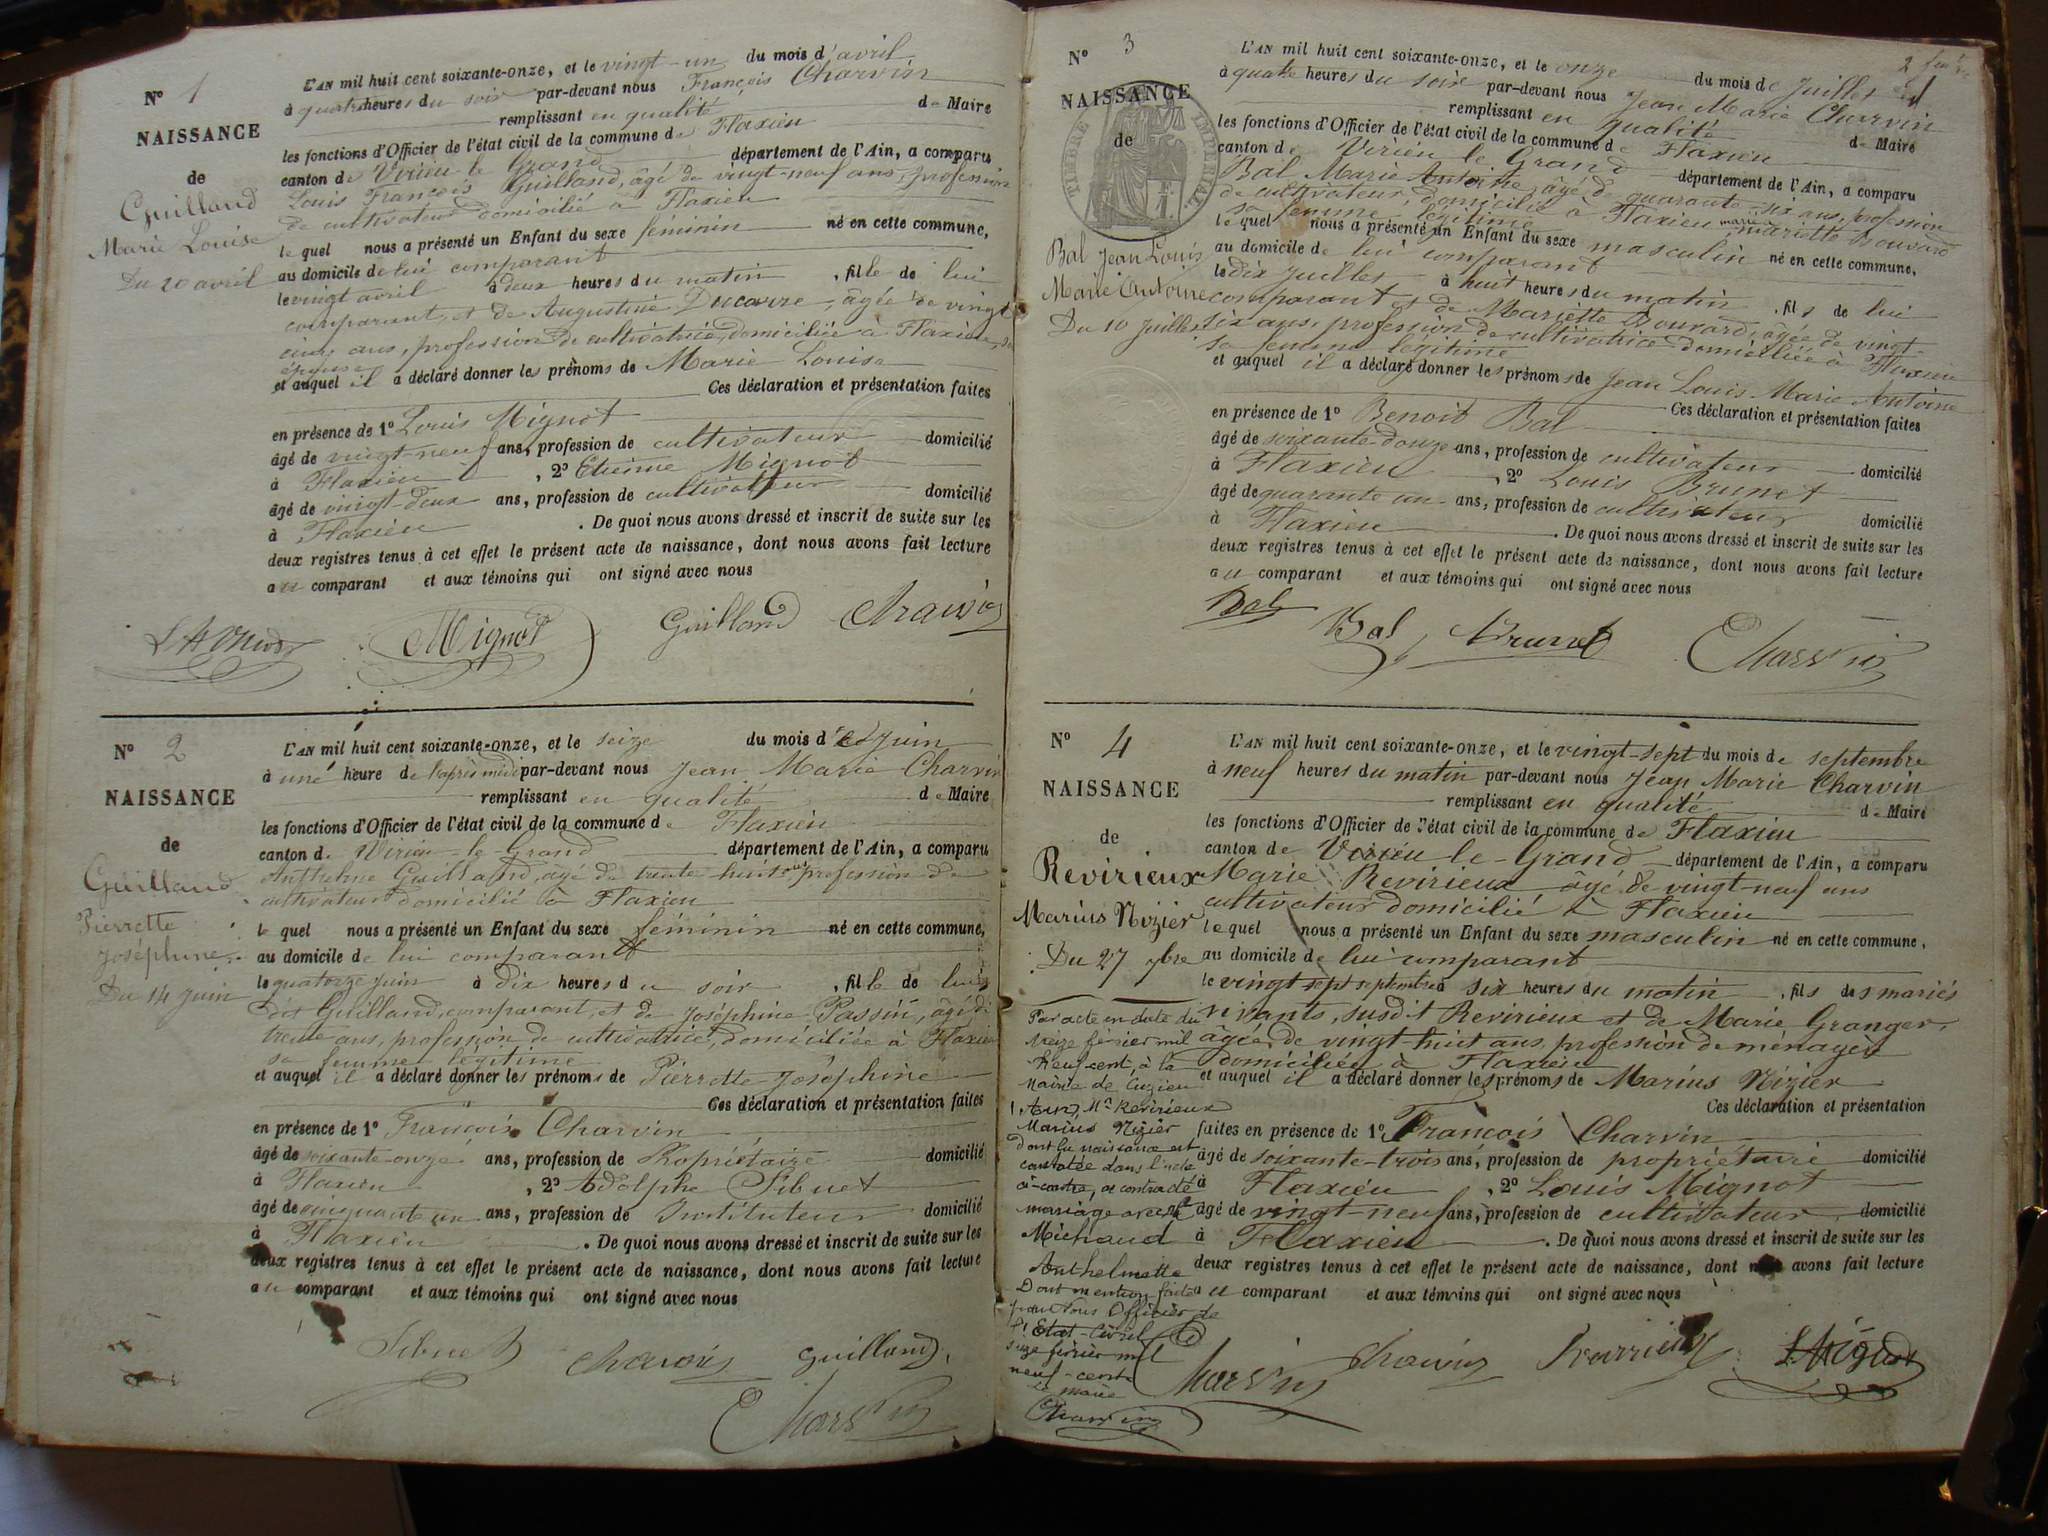 N° 1
NAISSANCE
de
Guilland
Marie Louise
Du 20 avril
L'AN mil huit cent soixante-onze, et le vingt-un du mois d'avril
à quatre heures du soir par-devant nous François Charvin
remplissant en qualité de Maire
les fonctions d'Officier de l'état civil de la commune de Flaxieu
canton de Virieu le Grand département de l'Ain, a comparu
Louis François Guilland, âgé de vingt-neuf ans, profession
de cultivateur domicilié à Flaxieu
le quel nous a présenté un Enfant du sexe féminin né en cette commune,
au domicile de lui comparant
le vingt avril à deux heures du matin, fille de lui
comparant, et de Augustine Ducarre, âgée de vingt
cinq ans, profession de cultivatrice, domiciliée à Flaxieu, sa
épouse
et auquel il a déclaré donner les prénoms de Marie Louise
Ces déclaration et présentation faites
en présence de 1° Louis Mignot
âgé de vingt-neuf ans, profession de cultivateur domicilié
à Flaxieu, 2° Etienne Mignot
âgé de vingt-deux ans, profession de cultivateur domicilié
à Flaxieu. De quoi nous avons dressé et inscrit de suite sur les
deux registres tenus à cet effet le présent acte de naissance, dont nous avons fait lecture
au comparant et aux témoins qui ont signé avec nous
Mignot Guilland Charvin
N° 2
NAISSANCE
de
Guilland
Pierrette
Joséphine
Du 14 juin
L'AN mil huit cent soixante-onze, et le seize du mois de Juin
à une heure de l'après midi par-devant nous Jean Marie Charvin
remplissant en qualité de Maire
les fonctions d'Officier de l'état civil de la commune de Flaxieu
canton de Virieu-le-Grand département de l'Ain, a comparu
Anthelme Guilland, agé de trente huit ans profession de
cultivateur domicilié à Flaxieu
le quel nous a présenté un Enfant du sexe féminin né en cette commune,
au domicile de lui comparant
le quatorze juin à dix heures du soir, fille de lui
dit Guilland, comparant, et de Joséphine Passin, âgé de
trente ans, profession de cultivatrice, domiciliée à Flaxieu
sa femme légitime
et auquel il a déclaré donner les prénoms de Pierrette Joséphine
Ces déclaration et présentation faites
en présence de 1° François Charvin
âgé de soixante-onze ans, profession de Propriétaire domicilié
à Flaxieu, 2° Adolphe Sibuet
âgé de cinquante un ans, profession de Instituteur domicilié
à Flaxieu. De quoi nous avons dressé et inscrit de suite sur les
deux registres tenus à cet effet le présent acte de naissance, dont nous avons fait lecture
au comparant et aux témoins qui ont signé avec nous
Sibuet Charvin Guilland
Charvin
N° 3
NAISSANCE
de
TIMBRE IMPERIAL
Bal Jean Louis
Marie Antoine
Du 10 Juillet
L'AN mil huit cent soixante-onze, et le onze du mois de Juillet
à quatre heures du soir par-devant nous Jean Marie Charvin
remplissant en qualité de Maire
les fonctions d'Officier de l'état civil de la commune de Flaxieu
canton de Virieu le Grand département de l'Ain, a comparu
Bal Marie Antoine, âgé de quarante-six ans, profession
de cultivateur, domicilié à Flaxieu, marié à Mariette Bouvard
sa femme légitime
le quel nous a présenté un Enfant du sexe masculin né en cette commune,
au domicile de lui comparant
le dix Juillet à huit heures du matin, fils de lui
comparant et de Mariette Bouvard, âgée de vingt-
six ans, profession de cultivatrice domiciliée à Flaxieu
sa femme légitime
et auquel il a déclaré donner les prénoms de Jean Louis Marie Antoine
Ces déclaration et présentation faites
en présence de 1° Benoit Bal
âgé de soixante-douze ans, profession de cultivateur domicilié
à Flaxieu, 2° Louis Brunet
âgé de quarante un ans, profession de cultivateur domicilié
à Flaxieu. De quoi nous avons dressé et inscrit de suite sur les
deux registres tenus à cet effet le présent acte de naissance, dont nous avons fait lecture
au comparant et aux témoins qui ont signé avec nous
Bal Bal Brunet Charvin
N° 4
NAISSANCE
de
Revirieux
Marius Nizier
Du 27 7bre
L'AN mil huit cent soixante-onze, et le vingt-sept du mois de septembre
à neuf heures du matin par-devant nous Jean Marie Charvin
remplissant en qualité de Maire
les fonctions d'Officier de l'état civil de la commune de Flaxieu
canton de Virieu le-Grand département de l'Ain, a comparu
Marie Revirieux âgé de vingt-neuf ans
cultivateur domicilié à Flaxieu
lequel nous a présenté un Enfant du sexe masculin né en cette commune,
au domicile de lui comparant
le vingt sept septembre à six heures du matin, fils des mariés
vivants, susdit Revirieux et de Marie Granger,
âgée de vingt-huit ans, profession de ménagère
domiciliée à Flaxieu
et auquel il a déclaré donner les prénoms de Marius Nizier
Ces déclaration et présentation
faites en présence de 1° François Charvin
âgé de soixante-trois ans, profession de propriétaire domicilié
à Flaxieu, 2° Louis Mignot
âgé de vingt-neuf ans, profession de cultivateur domicilié
à Flaxieu. De quoi nous avons dressé et inscrit de suite sur les
deux registres tenus à cet effet le présent acte de naissance, dont nous avons fait lecture
au comparant et aux témoins qui ont signé avec nous
Par acte en date du
seize février mil
neuf-cent, à la
Mairie de Cuzieu
Ain, Mr Revirieux
Marius Nizier
dont la naissance est
constatée dans l'acte
ci-contre, a contracté
mariage avec Mlle
Michaud
Anthelmette
Dont mention faite
par nous Officier de
l'Etat-Civil le
seize février mil
neuf-cent
le maire
Charvin
Charvin Charvin Revirieux L. Mignot